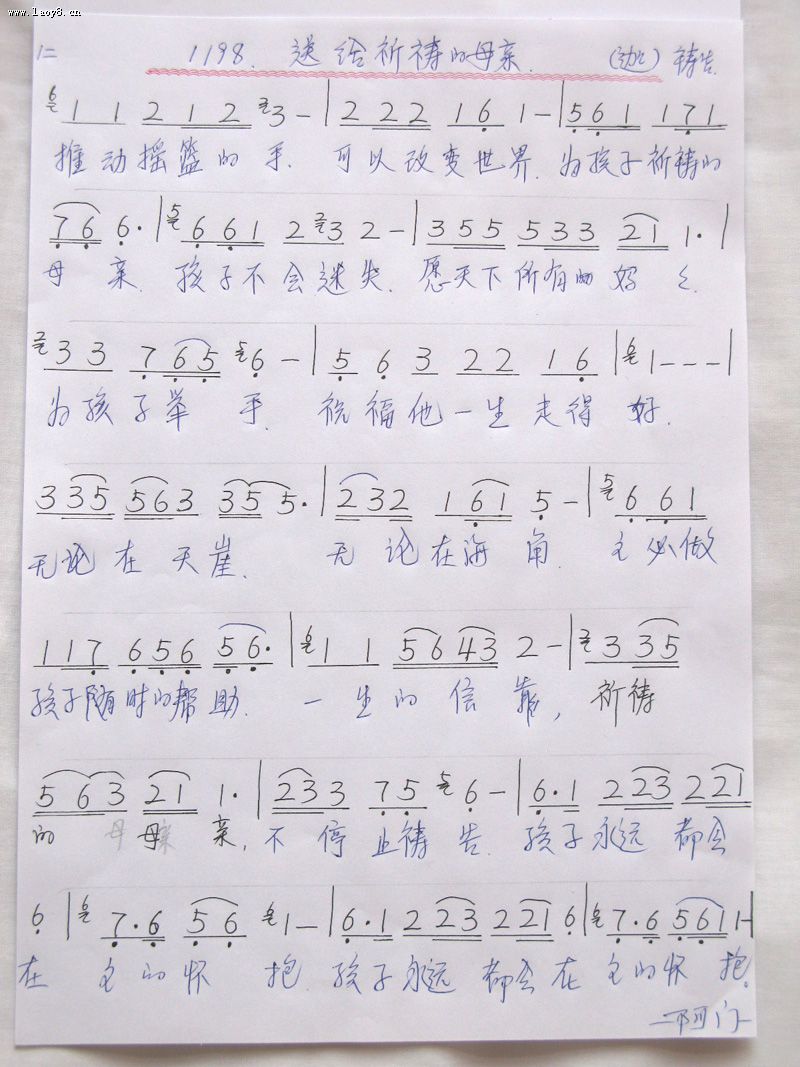 www.laoy8.cn
1198. 送给祈祷的母亲. (迦) 祷告.
6 1 1 2 1 2 3 3 - | 2 2 2 1 6 1 - | 5 6 1 1 7 1
推动摇篮的手. 可以改变世界. 为孩子祈祷的
7 6 6· | 5 6 6 1 2 2 3 2 - | 3 5 5 5 3 3 2 1 1· |
母亲. 孩子不会迷失. 愿天下所有的妈々.
2 3 3 7 6 5 5 6 - | 5 6 3 2 2 1 6 | 6 1 - - - |
为孩子举手. 祝福他一生走得好.
3 3 5 5 6 3 3 5 5· | 2 3 2 1 6 1 5 - | 5 6 6 1
无论在天崖. 无论在海角. 主必做
1 1 7 6 5 6 5 6· | 6 1 1 5 6 4 3 2 - | 2 3 3 5
孩子随时的帮助. 一生的信靠, 祈祷
5 6 3 2 1 1· | 2 3 3 7 5 5 6 - | 6·1 2 2 3 2 2 1
的母亲, 不停止祷告. 孩子永远都会
6 | 6 7·6 5 6 6 1 - | 6·1 2 2 3 2 2 1 6 | 6 7·6 5 6 1 1 -
在主的怀抱. 孩子永远都会在主的怀抱.
—阿门—